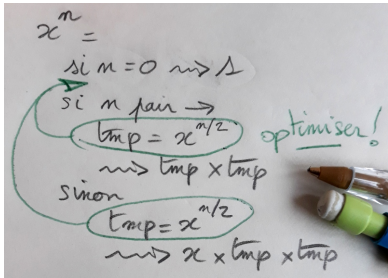 xⁿ =
si n=0 ⇝ 1
si n pair →
tmp = x^{n/2}
optimiser!
⇝ tmp × tmp
sinon
tmp = x^{n/2}
⇝ x × tmp × tmp